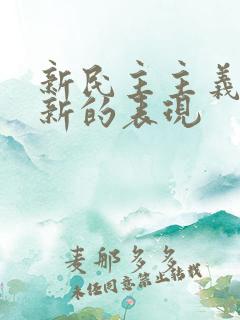 新民主主義
新的表現
麦那多多
未经同意禁止转载